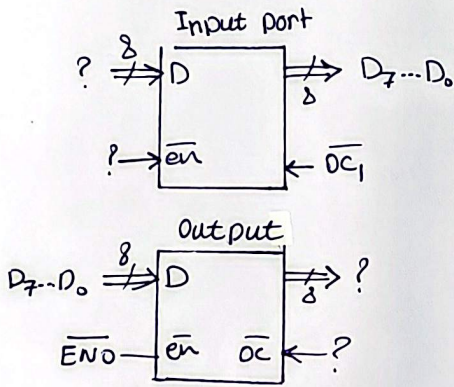 Input port
? 8 D 8 D₇...D₀
? e̅n̅ O̅C̅₁
Output
D₇...D₀ 8 D 8 ?
E̅N̅O̅ e̅n̅ O̅C̅ ?